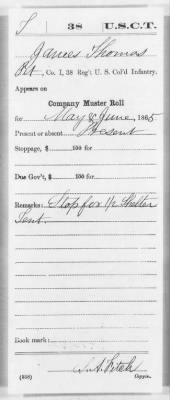 T | 38 | U.S.C.T.
James Thomas
Pvt, Co. I, 38 Reg't U. S. Col'd Infantry.
Appears on
Company Muster Roll
for May & June, 1865
Present or absent Present
Stoppage, $ 100 for
Due Gov't, $ 100 for
Remarks: Stop for 1/2 Shelter
Tent.
Book mark:
(858) Copyist.